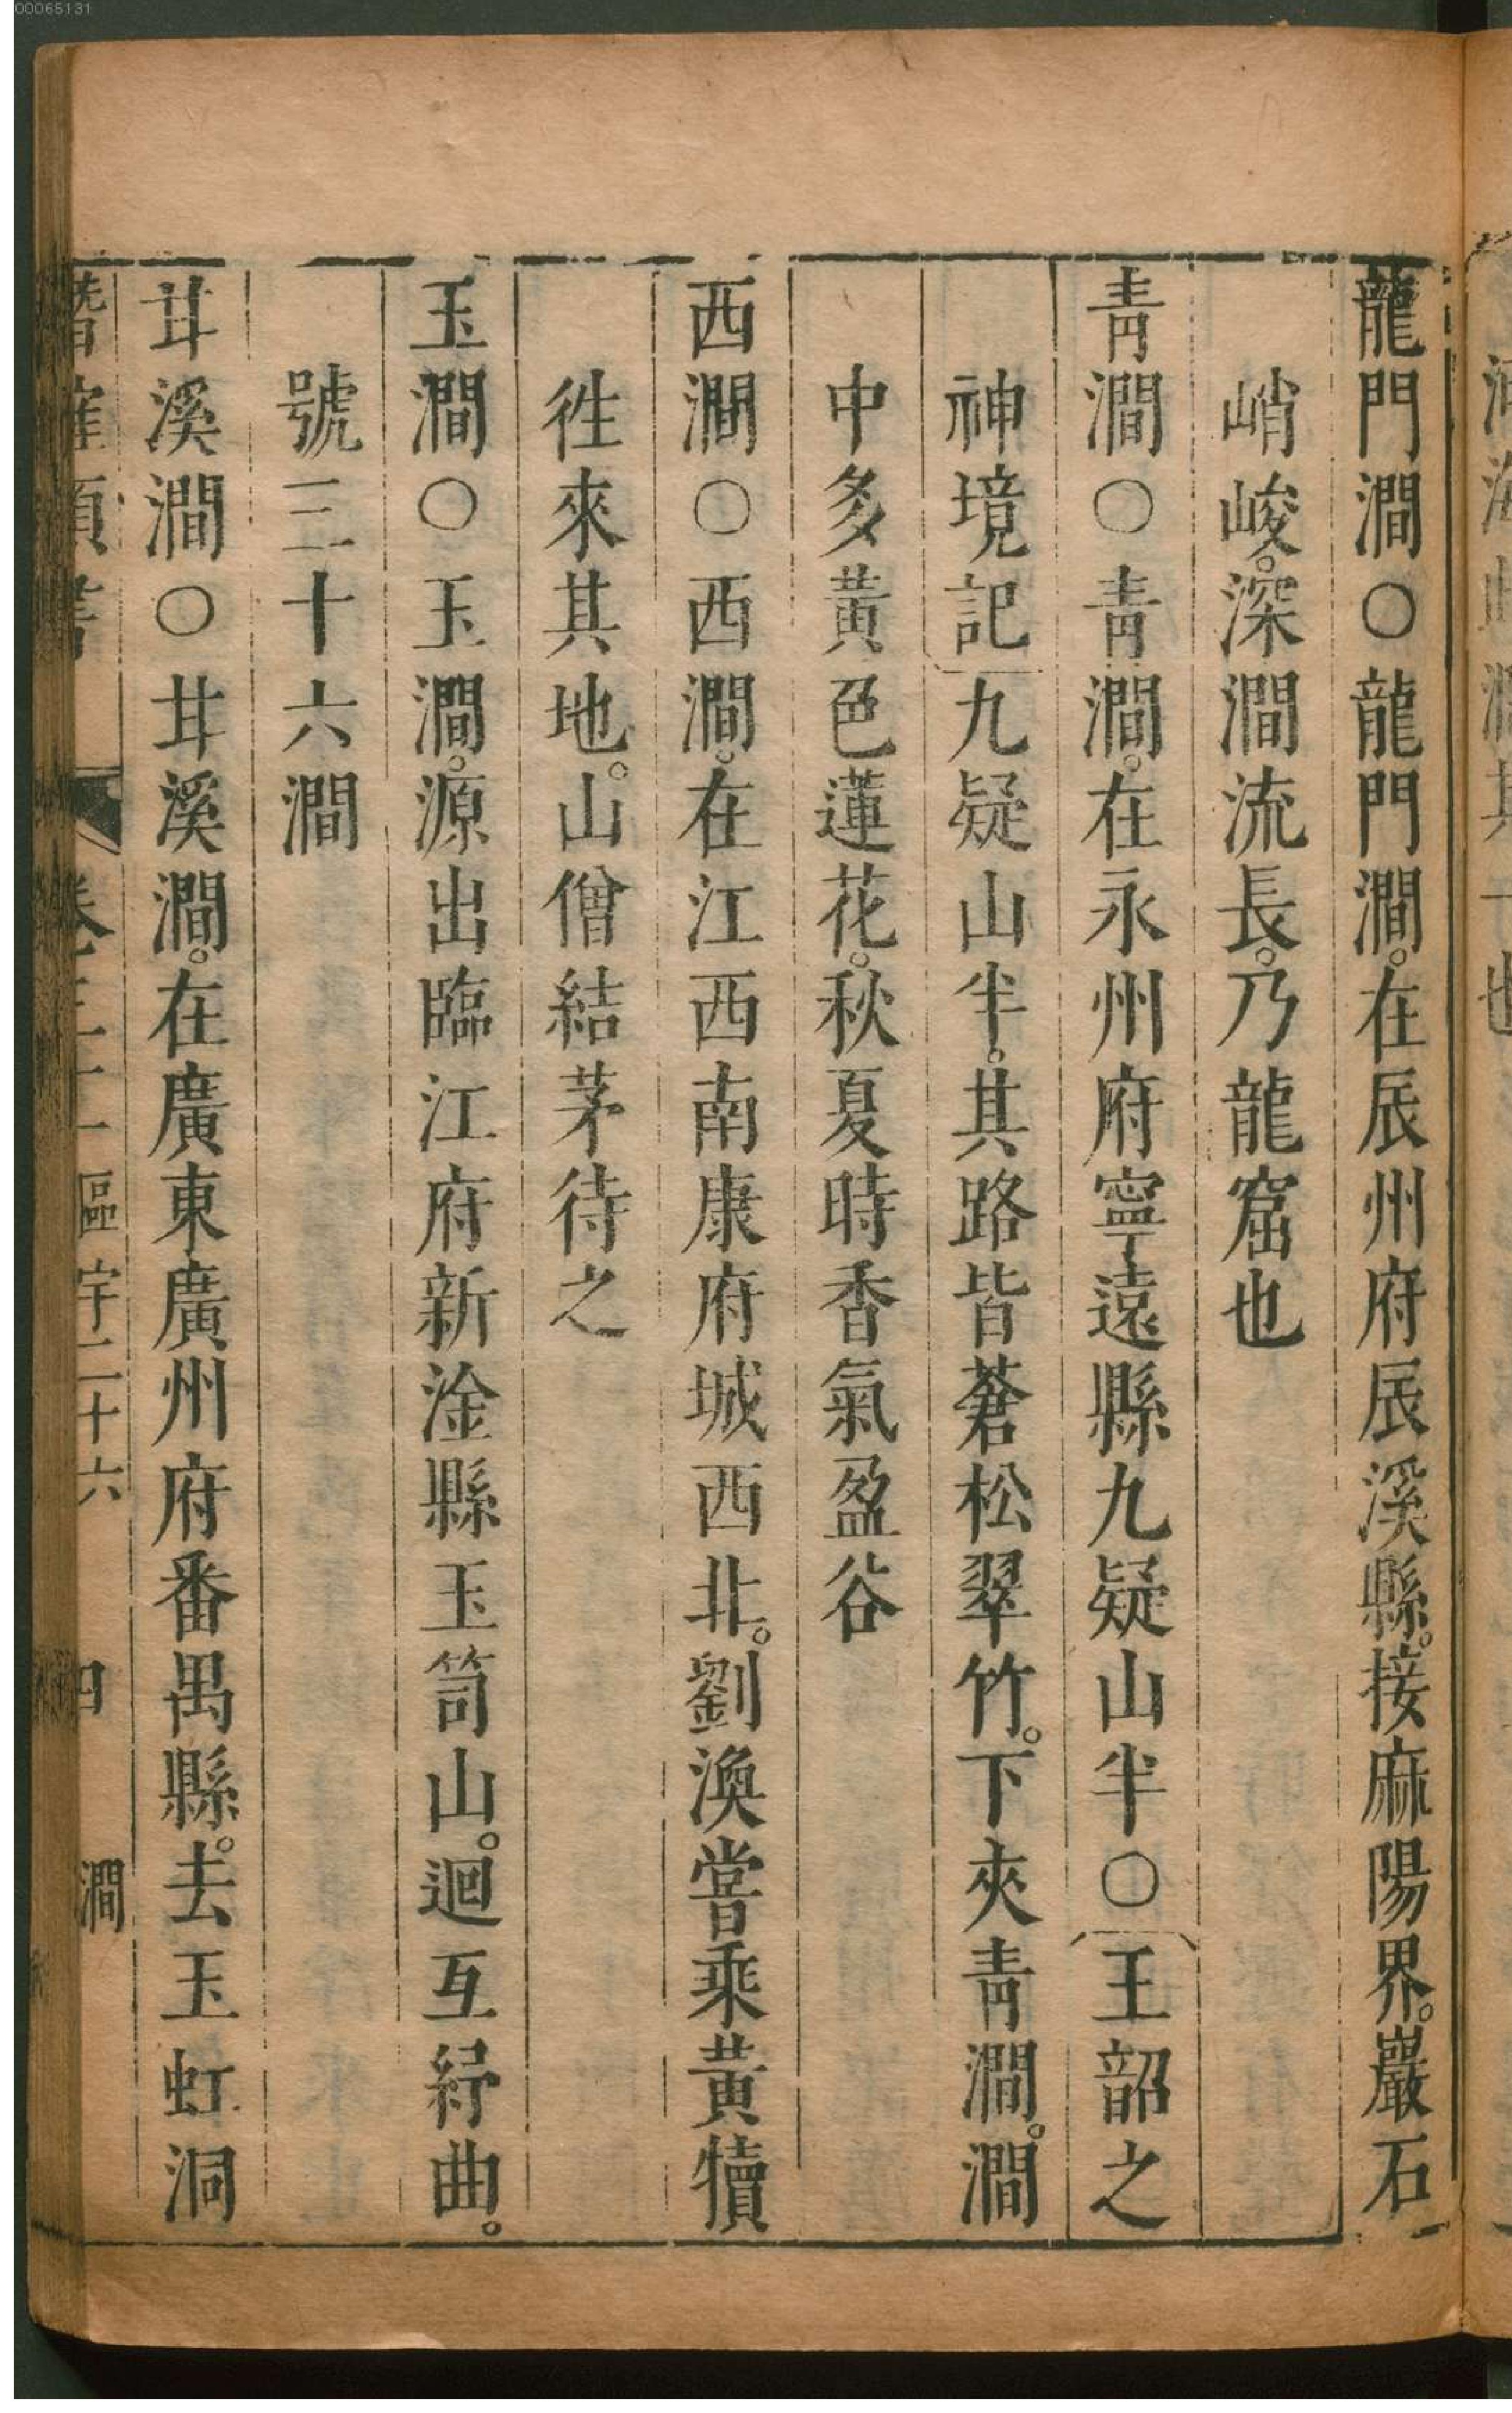 00065131
龍門澗○龍門澗。在辰州府辰溪縣。接麻陽界。巖石
峭峻。深澗流長。乃龍窟也
青澗○青澗。在永州府寧遠縣九疑山半○王韶之
神境記九疑山半。其路皆蒼松翠竹。下夾青澗。澗
中多黃色蓮花。秋夏時香氣盈谷
西澗○西澗。在江西南康府城西北。劉渙嘗乘黃犢
徃來其地。山僧結茅待之
玉澗○玉澗。源出臨江府新淦縣玉笥山。迴互紆曲。
號三十六澗
甘溪澗○甘溪澗。在廣東廣州府番禺縣。去玉虹洞
區宇二十六 四 澗